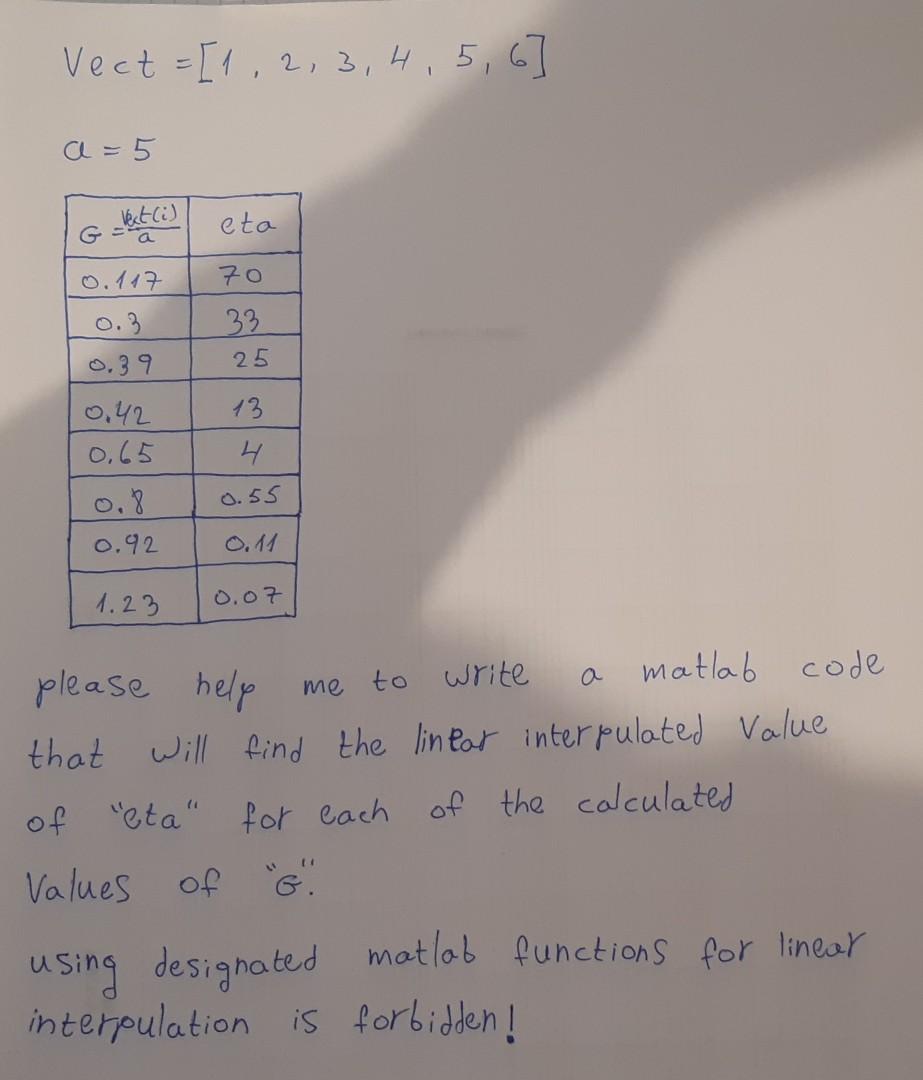 Vect = [1, 2, 3, 4, 5, 6]
a = 5
G = Vect(i)/a eta
0.117 70
0.3 33
0.39 25
0.42 13
0.65 4
0.8 0.55
0.92 0.11
1.23 0.07
please help me to write a matlab code
that will find the linear interpulated Value
of "eta" for each of the calculated
Values of "G".
using designated matlab functions for linear
interpulation is forbidden!